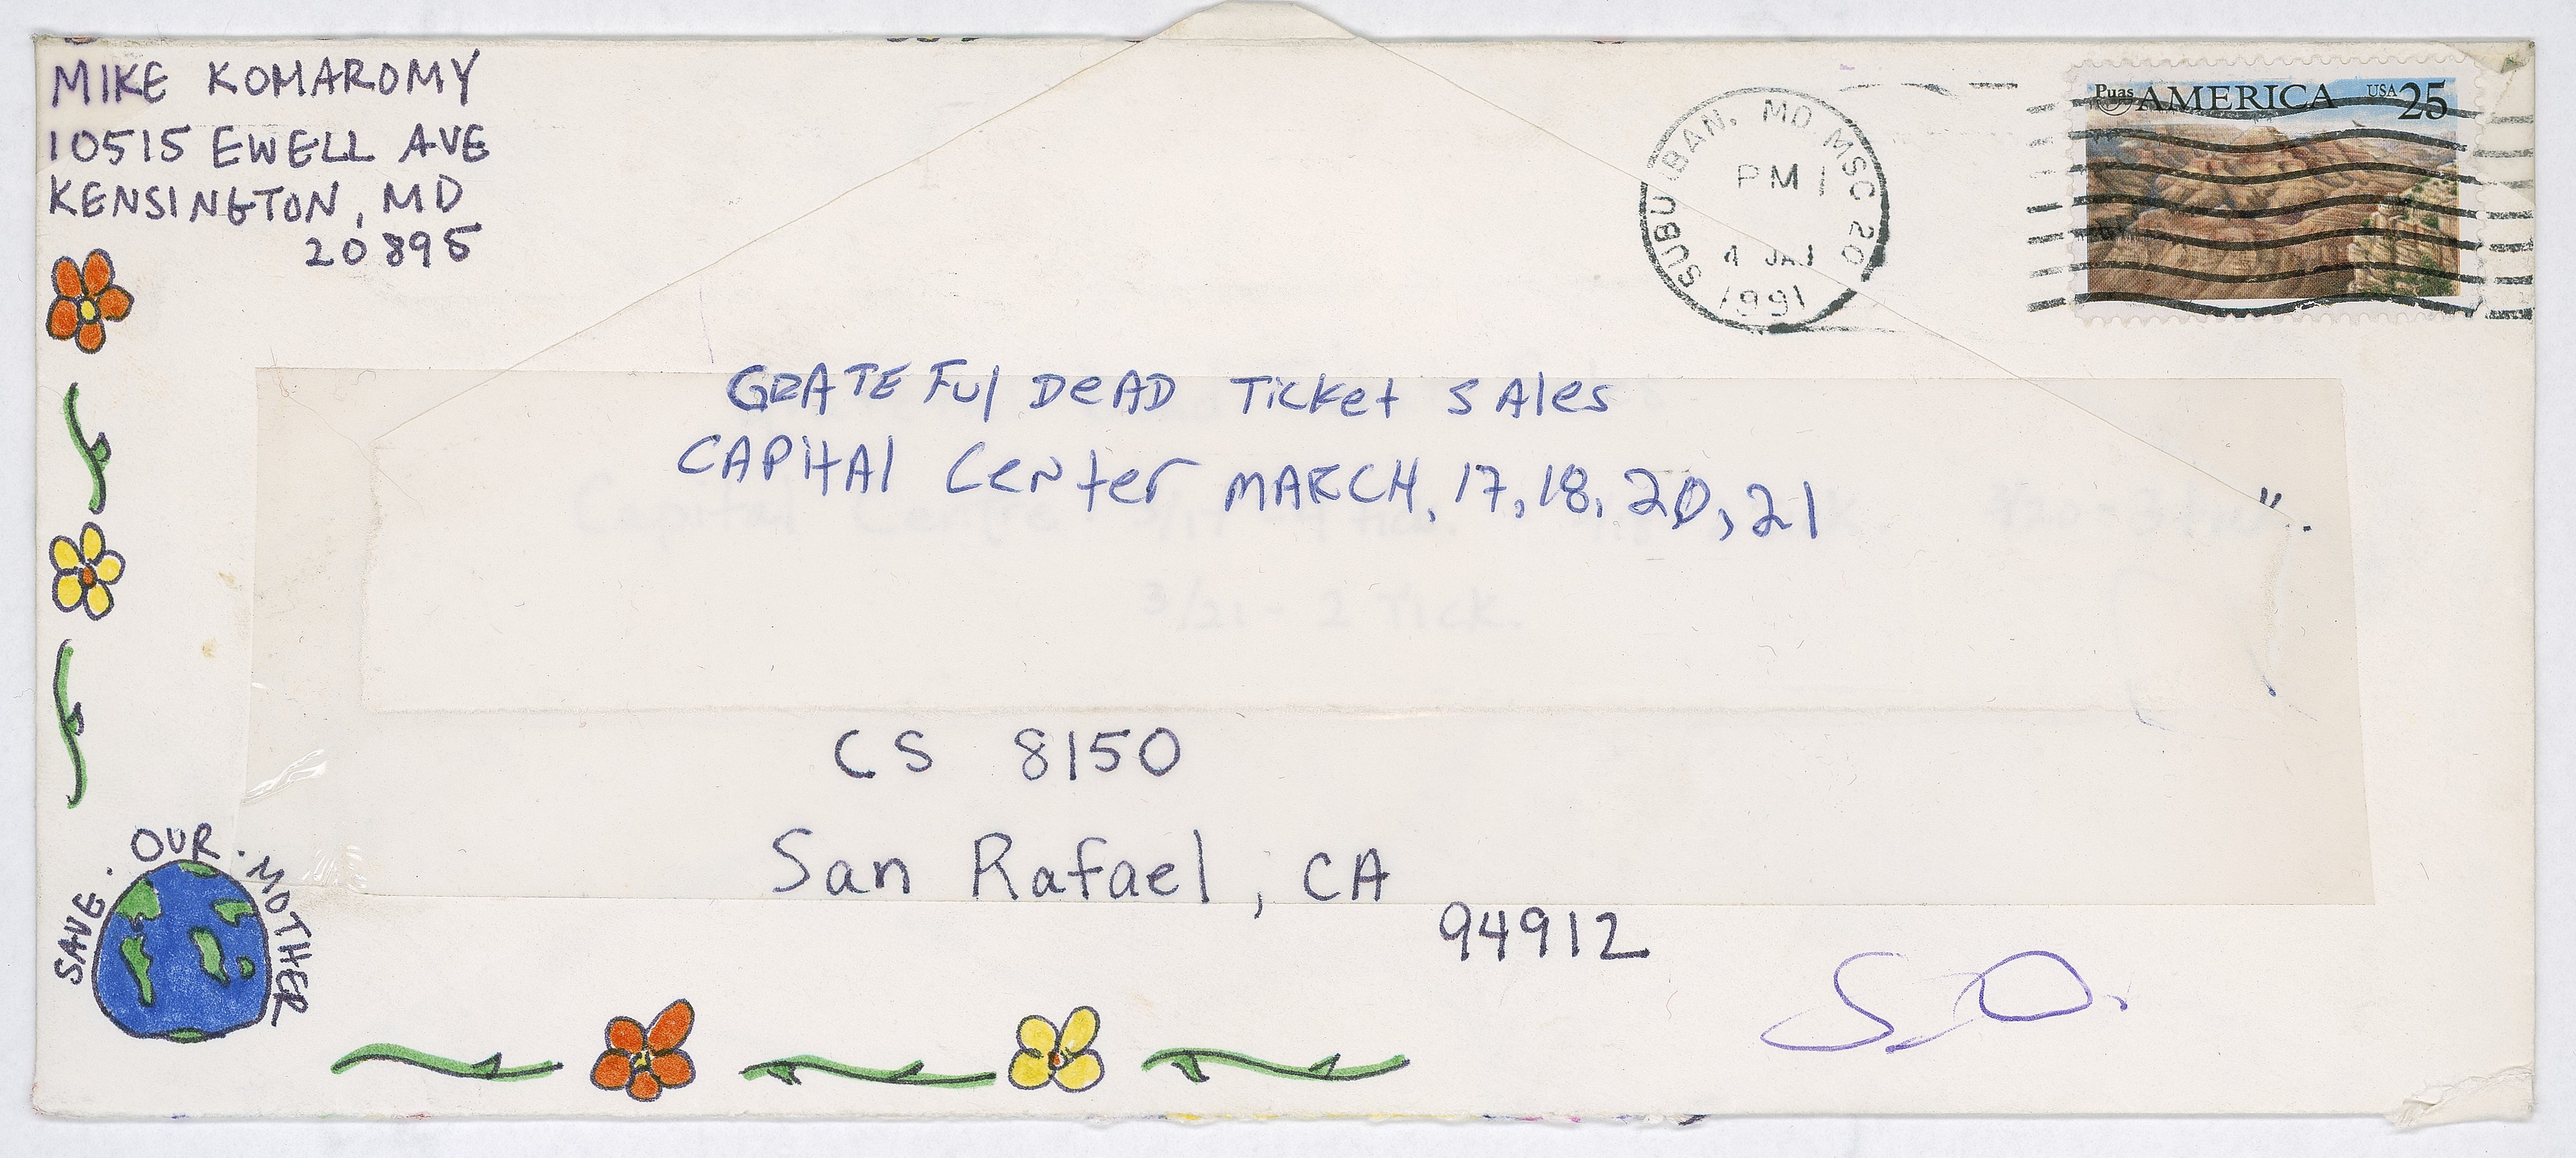 MIKE KOMAROMY
10515 EWELL AVE
KENSINGTON, MD
20895
SUBURBAN, MD MSC 20
PM
4 JAN
1991
Puas AMERICA USA 25
GRATEFul DeAD Ticket SAles
CAPitAl Center MARCH, 17, 18, 20, 21
3/21 - 2 Tick.
CS 8150
San Rafael, CA
94912
SAVE · OUR · MOTHER